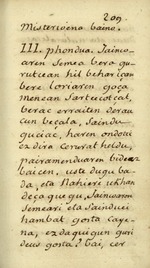 209.
Misterioena baino.
III. phondua. Jainco-
aren Semea bera gu-
rutcean hil behar içan
bere loriaren goça
menean sartcecotçat,
berac erraiten deraucun
beçala, Saindu
guciac, haren ondoti
ez dira Cerurat heldu,
pairamenduaren bidez
baicen, uste dugu ba
da, eta nahiere ukhan
deçaquegu, Jaincoaren
Semeari eta Sainduei
hambat gosta çaye-
na, ez daquigun guri
deus gosta? bai, cer